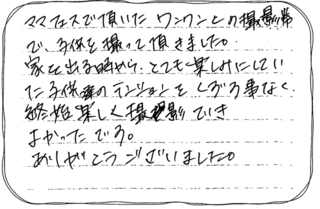 ママフェスで頂いたワンワンとの撮影券
で、子供を撮って頂きました。
家を出る時から、とても楽しみにしてい
た子供達のテンションをくずす事なく、
終始楽しく撮影でき
よかったです。
ありがとうございました。